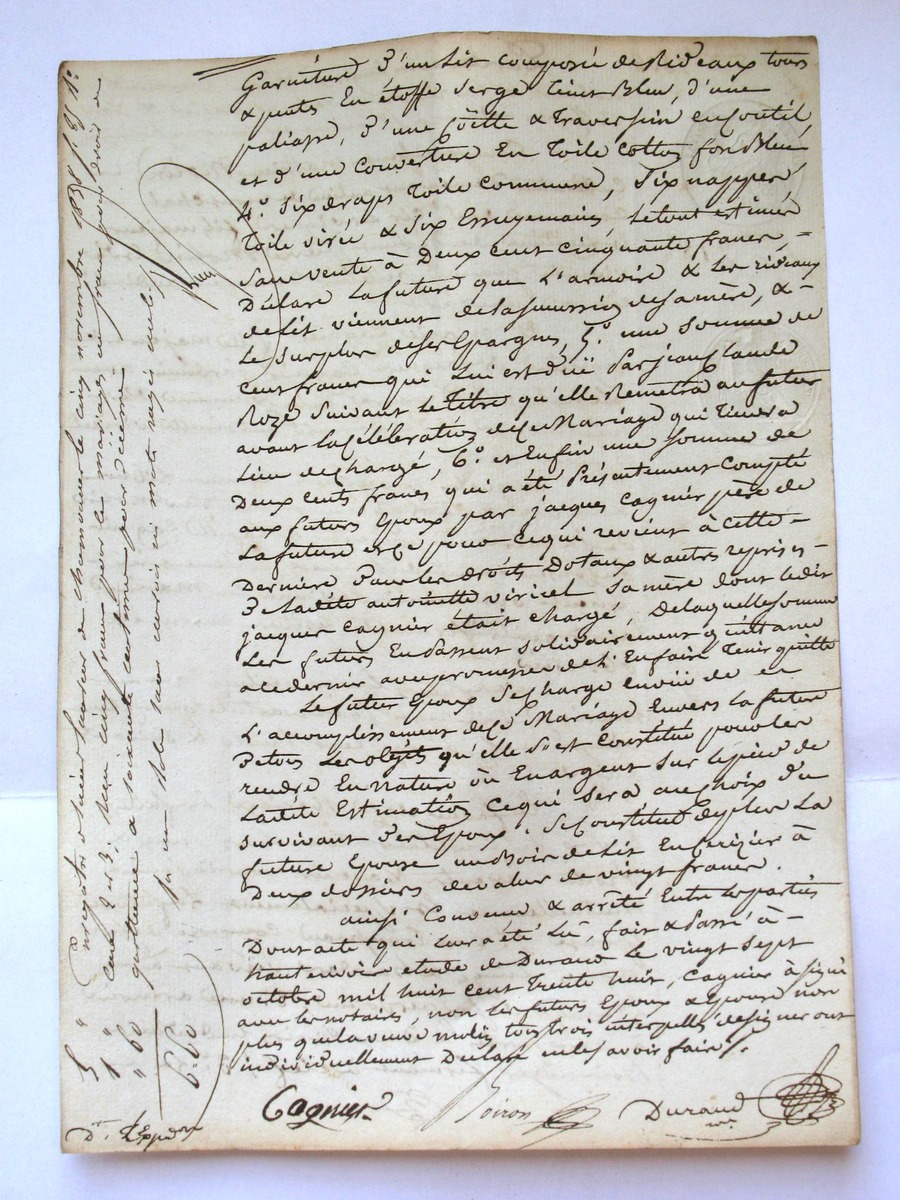 Garniture d'un Lit composé de Rideaux tours
& pentes En étoffe Serge teint Bleu, d'une
paliasse, d'une Coëtte & Traversin en Coutil
et d'une Couverture En Toile Cotton fon Bleu
4°. Six draps Toile Commune, Six nappes
Toile virée & Six Essuyemains Le tout estimé
Sans vente à Deux cent cinquante francs,
Déclare La future que L'armoire & Les rideaux
de Lit viennent de la Succession de sa mère, &
Le surplus de ses Epargnes, 5°. une Somme de
Cent francs qui Lui est düe Par jean Claude
Roze Suivant Le Titre qu'elle Remettra au futur
avant La Célébration de Ce Mariage qui Tiendra
Lieu de Chargé, 6°. et Enfin une Somme de
Deux cents francs qui a été Présentement Compté
aux futurs Epoux par jacques Cagnier père de
La future et Ce pour Ce qui revient à Cette
Dernière Pour les droits Dotaux & autres reprises
De Ladite antoinette viricel Sa mère dont Ledit
jacques Cagnier était Chargé, De laquelle Somme
Les futurs En Passent Solidairement quittance
à ce dernier avec promesse de L'En faire Tenir quitte
Le futur Epoux Se charge en vüe de
L'accomplissement de Ce Mariage Envers La future
De tous Les objets qu'elle S'est Constitué pour Les
rendre En nature où En argent Sur Le pied de
Ladite Estimation Ce qui Sera au Choix du
Survivant des Epoux. Se Constitue de plus La
future Epouse un Bois de Lit En Cerizier à
Deux dossiers de valeur de vingt francs.
ainsi Convenu & arrêté Entre Les parties
Dont acte qui Leur a été Lu, fait & Passé à
haute rivoire étude de Durand Le vingt Sept
octobre mil huit Cent Trente huit, Cagnier à Signé
avec Les notaires, non Les futurs Epoux & Epouse non
plus que La veuve Molin tous trois interpellés de Signer ont
individuellement Déclaré ne Le Savoir faire
Cagnier
Boiron
Durand
Enregistré à St
le cinq novembre 1838 f. 69 R°
case 2 et 3; reçu cinq francs pour le mariage, un franc pour droit de
quittance & soixante centimes pour décime
5 "
1 "
" 60
6-60